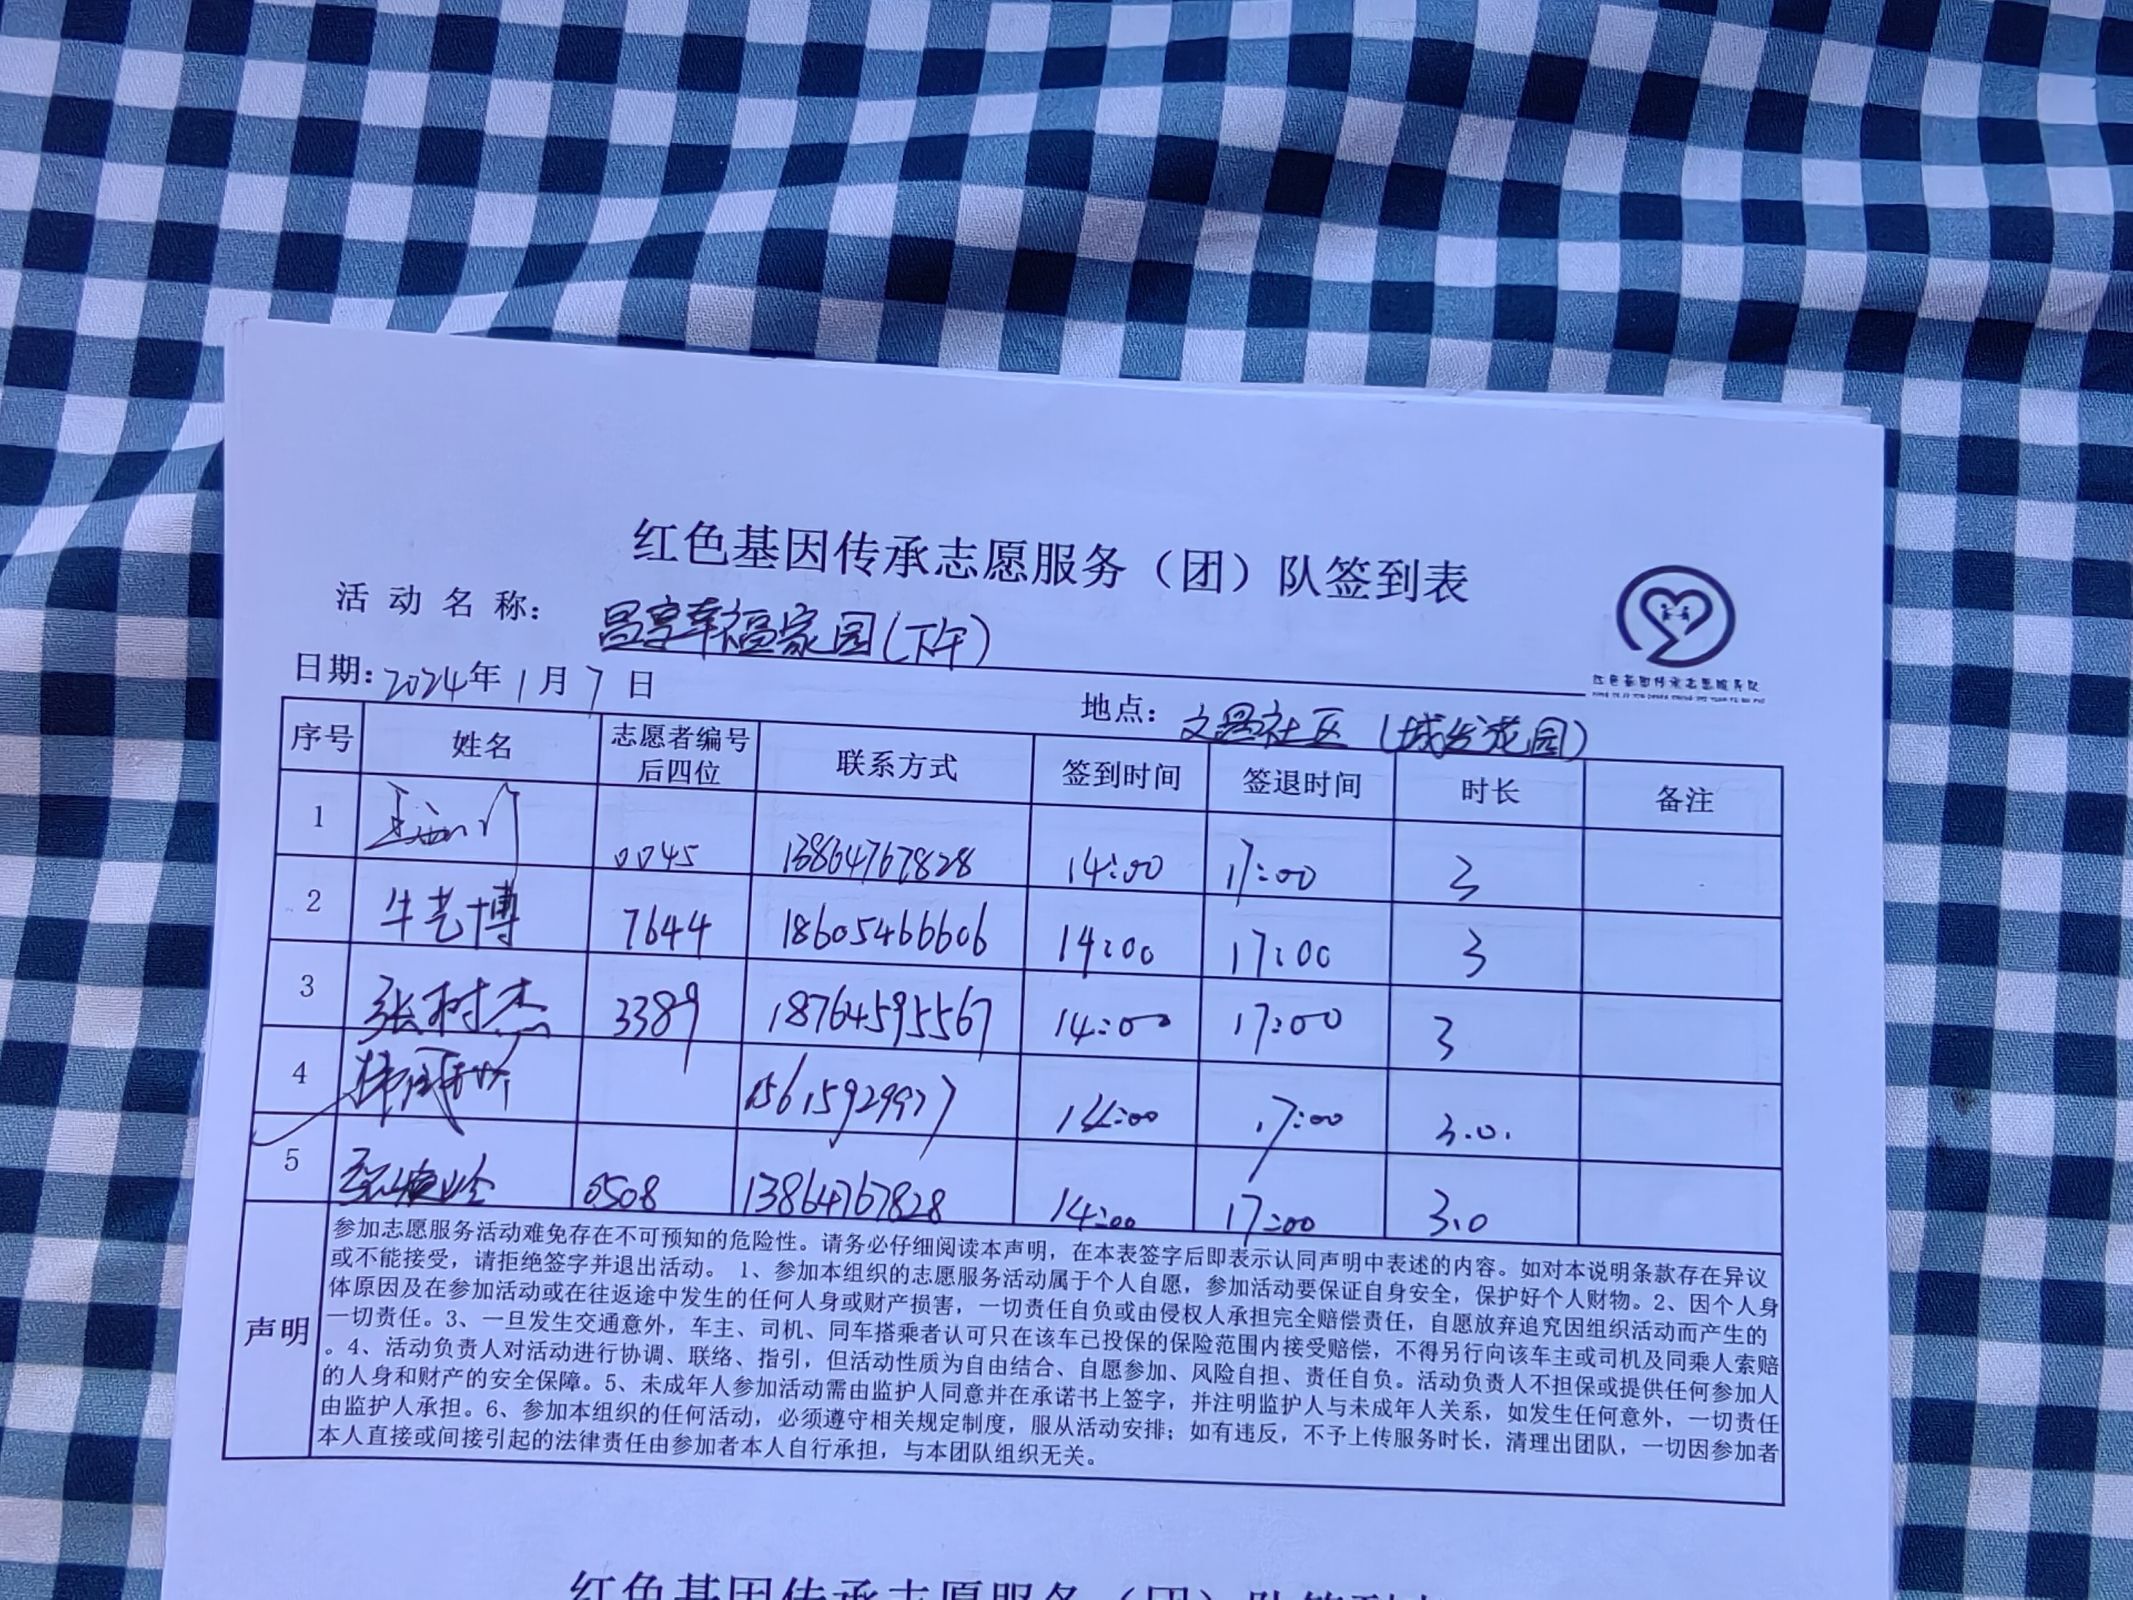 红色基因传承志愿服务（团）队签到表
活动名称：昌享幸福家园（下午）
红色基因传承志愿服务队
日期：2024年1月7日 地点：文昌社区（城发花园）
序号 姓名 志愿者编号后四位 联系方式 签到时间 签退时间 时长 备注
1 0045 13864767828 14:00 17:00 3
2 牛艺博 7644 18605466606 14:00 17:00 3
3 张树杰 3389 18764595567 14:00 17:00 3
4 15615929977 14:00 17:00 3.0.
5 0508 13864767828 14:00 17:00 3.0
声明
参加志愿服务活动难免存在不可预知的危险性。请务必仔细阅读本声明，在本表签字后即表示认同声明中表述的内容。如对本说明条款存在异议
或不能接受，请拒绝签字并退出活动。 1、参加本组织的志愿服务活动属于个人自愿，参加活动要保证自身安全，保护好个人财物。2、因个人身
体原因及在参加活动或在往返途中发生的任何人身或财产损害，一切责任自负或由侵权人承担完全赔偿责任，自愿放弃追究因组织活动而产生的
一切责任。3、一旦发生交通意外，车主、司机、同车搭乘者认可只在该车已投保的保险范围内接受赔偿，不得另行向该车主或司机及同乘人索赔
。4、活动负责人对活动进行协调、联络、指引，但活动性质为自由结合、自愿参加、风险自担、责任自负。活动负责人不担保或提供任何参加人
的人身和财产的安全保障。5、未成年人参加活动需由监护人同意并在承诺书上签字，并注明监护人与未成年人关系，如发生任何意外，一切责任
由监护人承担。6、参加本组织的任何活动，必须遵守相关规定制度，服从活动安排；如有违反，不予上传服务时长，清理出团队，一切因参加者
本人直接或间接引起的法律责任由参加者本人自行承担，与本团队组织无关。
红色基因传承志愿服务（团）队签到表